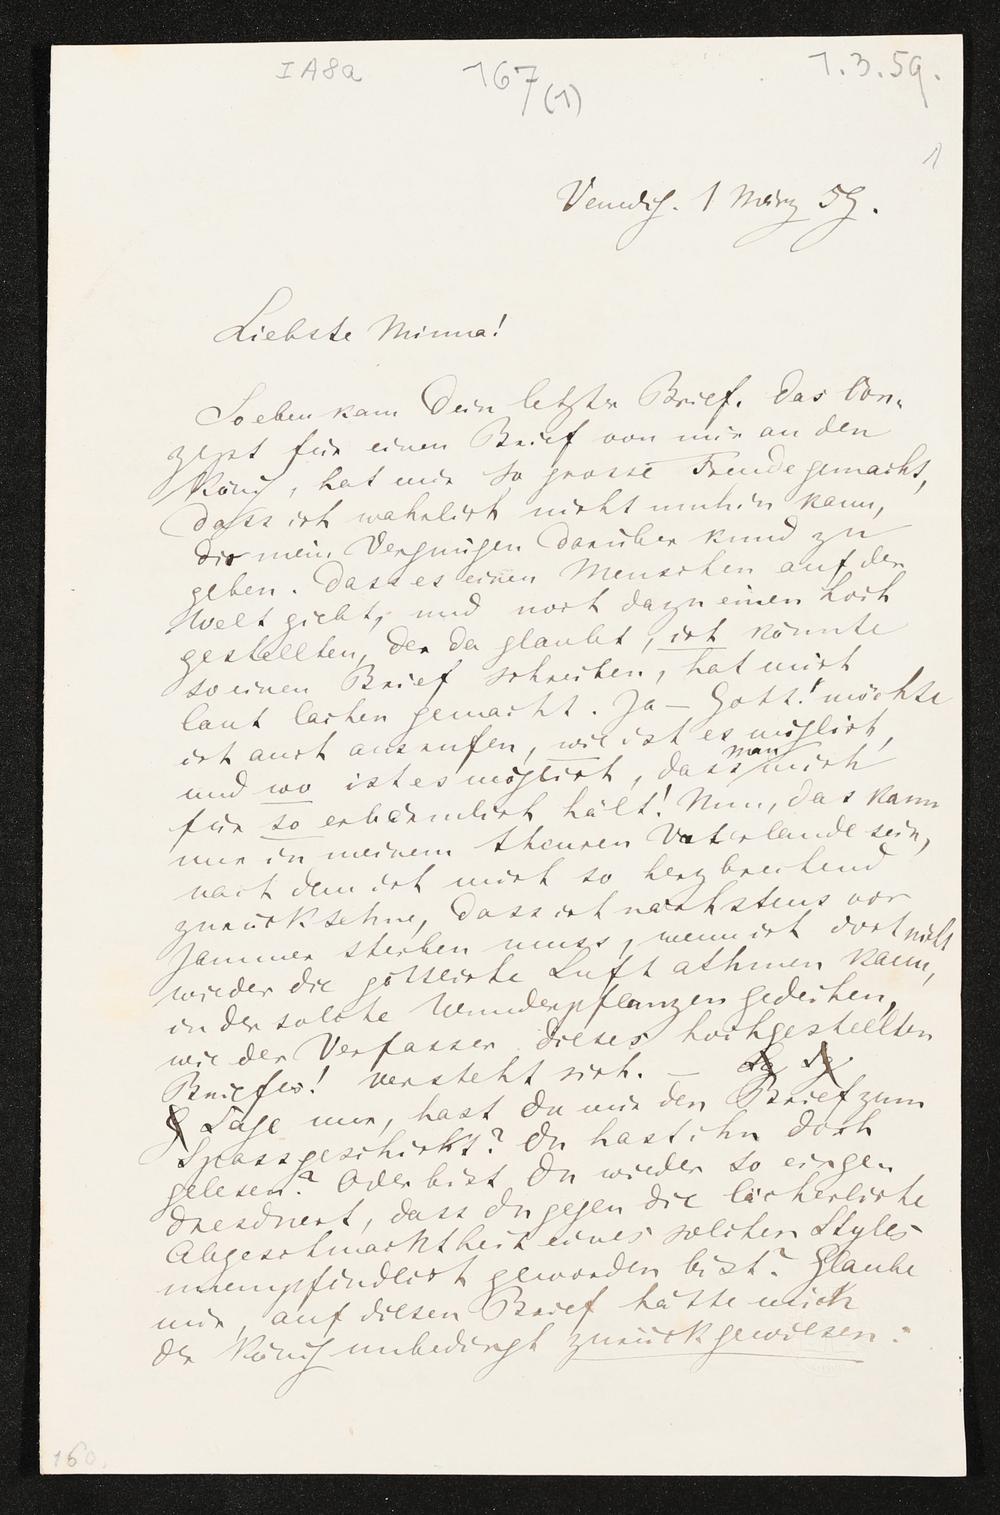 IA8a 167 (1) 1.3.59.
1
Venedig. 1 März 59.
Liebste Minna!
Soeben kam Dein letzter Brief. Das Con-
zept für einen Brief von mir an den
König, hat mir so grosse Freude gemacht,
dass ich wahrlich nicht umhin kann,
dir mein Vergnügen darüber kund zu
geben. Dass es einen Menschen auf der
Welt giebt, und noch dazu einen hoch
gestellten, der da glaubt, ich könnte
so einen Brief schreiben, hat mich
laut lachen gemacht. Ja – Gott! möchte
ich auch ausrufen, wie ist es möglich,
und wo ist es möglich, dass man mich
für so erbärmlich hält! Nun, das kann
nur in meinem theuren Vaterlande sein,
nach dem ich mich so herzbrechend
zurücksehne, dass ich nächstens vor
Jammer sterben muss, wenn ich dort nicht
wieder die göttliche Luft athmen kann,
in der solche Wunderpflanzen gedeihen,
wie der Verfasser dieses hochgestellten
Briefes! versteht sich. –
Sage nur, hast Du mir den Brief zum
Spass geschickt? Du hast ihn doch
gelesen? Oder bist Du wieder so eingen
dresdnert, dass Du gegen die lächerliche
Abgeschmacktheit eines solchen Styles
unempfindlich geworden bist? Glaube
mir, auf diesen Brief hätte mich
der König unbedingt zurückgewiesen:
160.